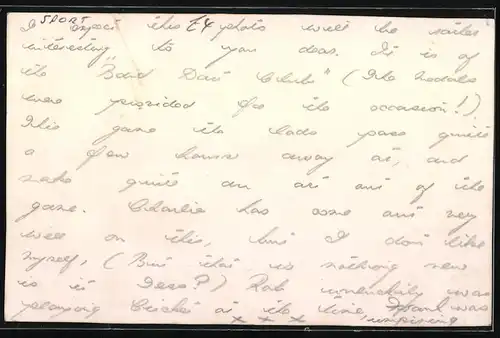 SPORT £4
I expect this photo will be rather
interesting to you dear. It is of
the "Bad Dart Club" (The medals
were provided for the occasion!).
This game the lads pass quite
a few hours away at, and
make quite an art out of the
game. Charlie has come out very
well on this, but I don't like
myself, (But that is nothing new
is it Dess?) Bob unluckily was
playing Cricket at the time, Frank was
x x x umpiring